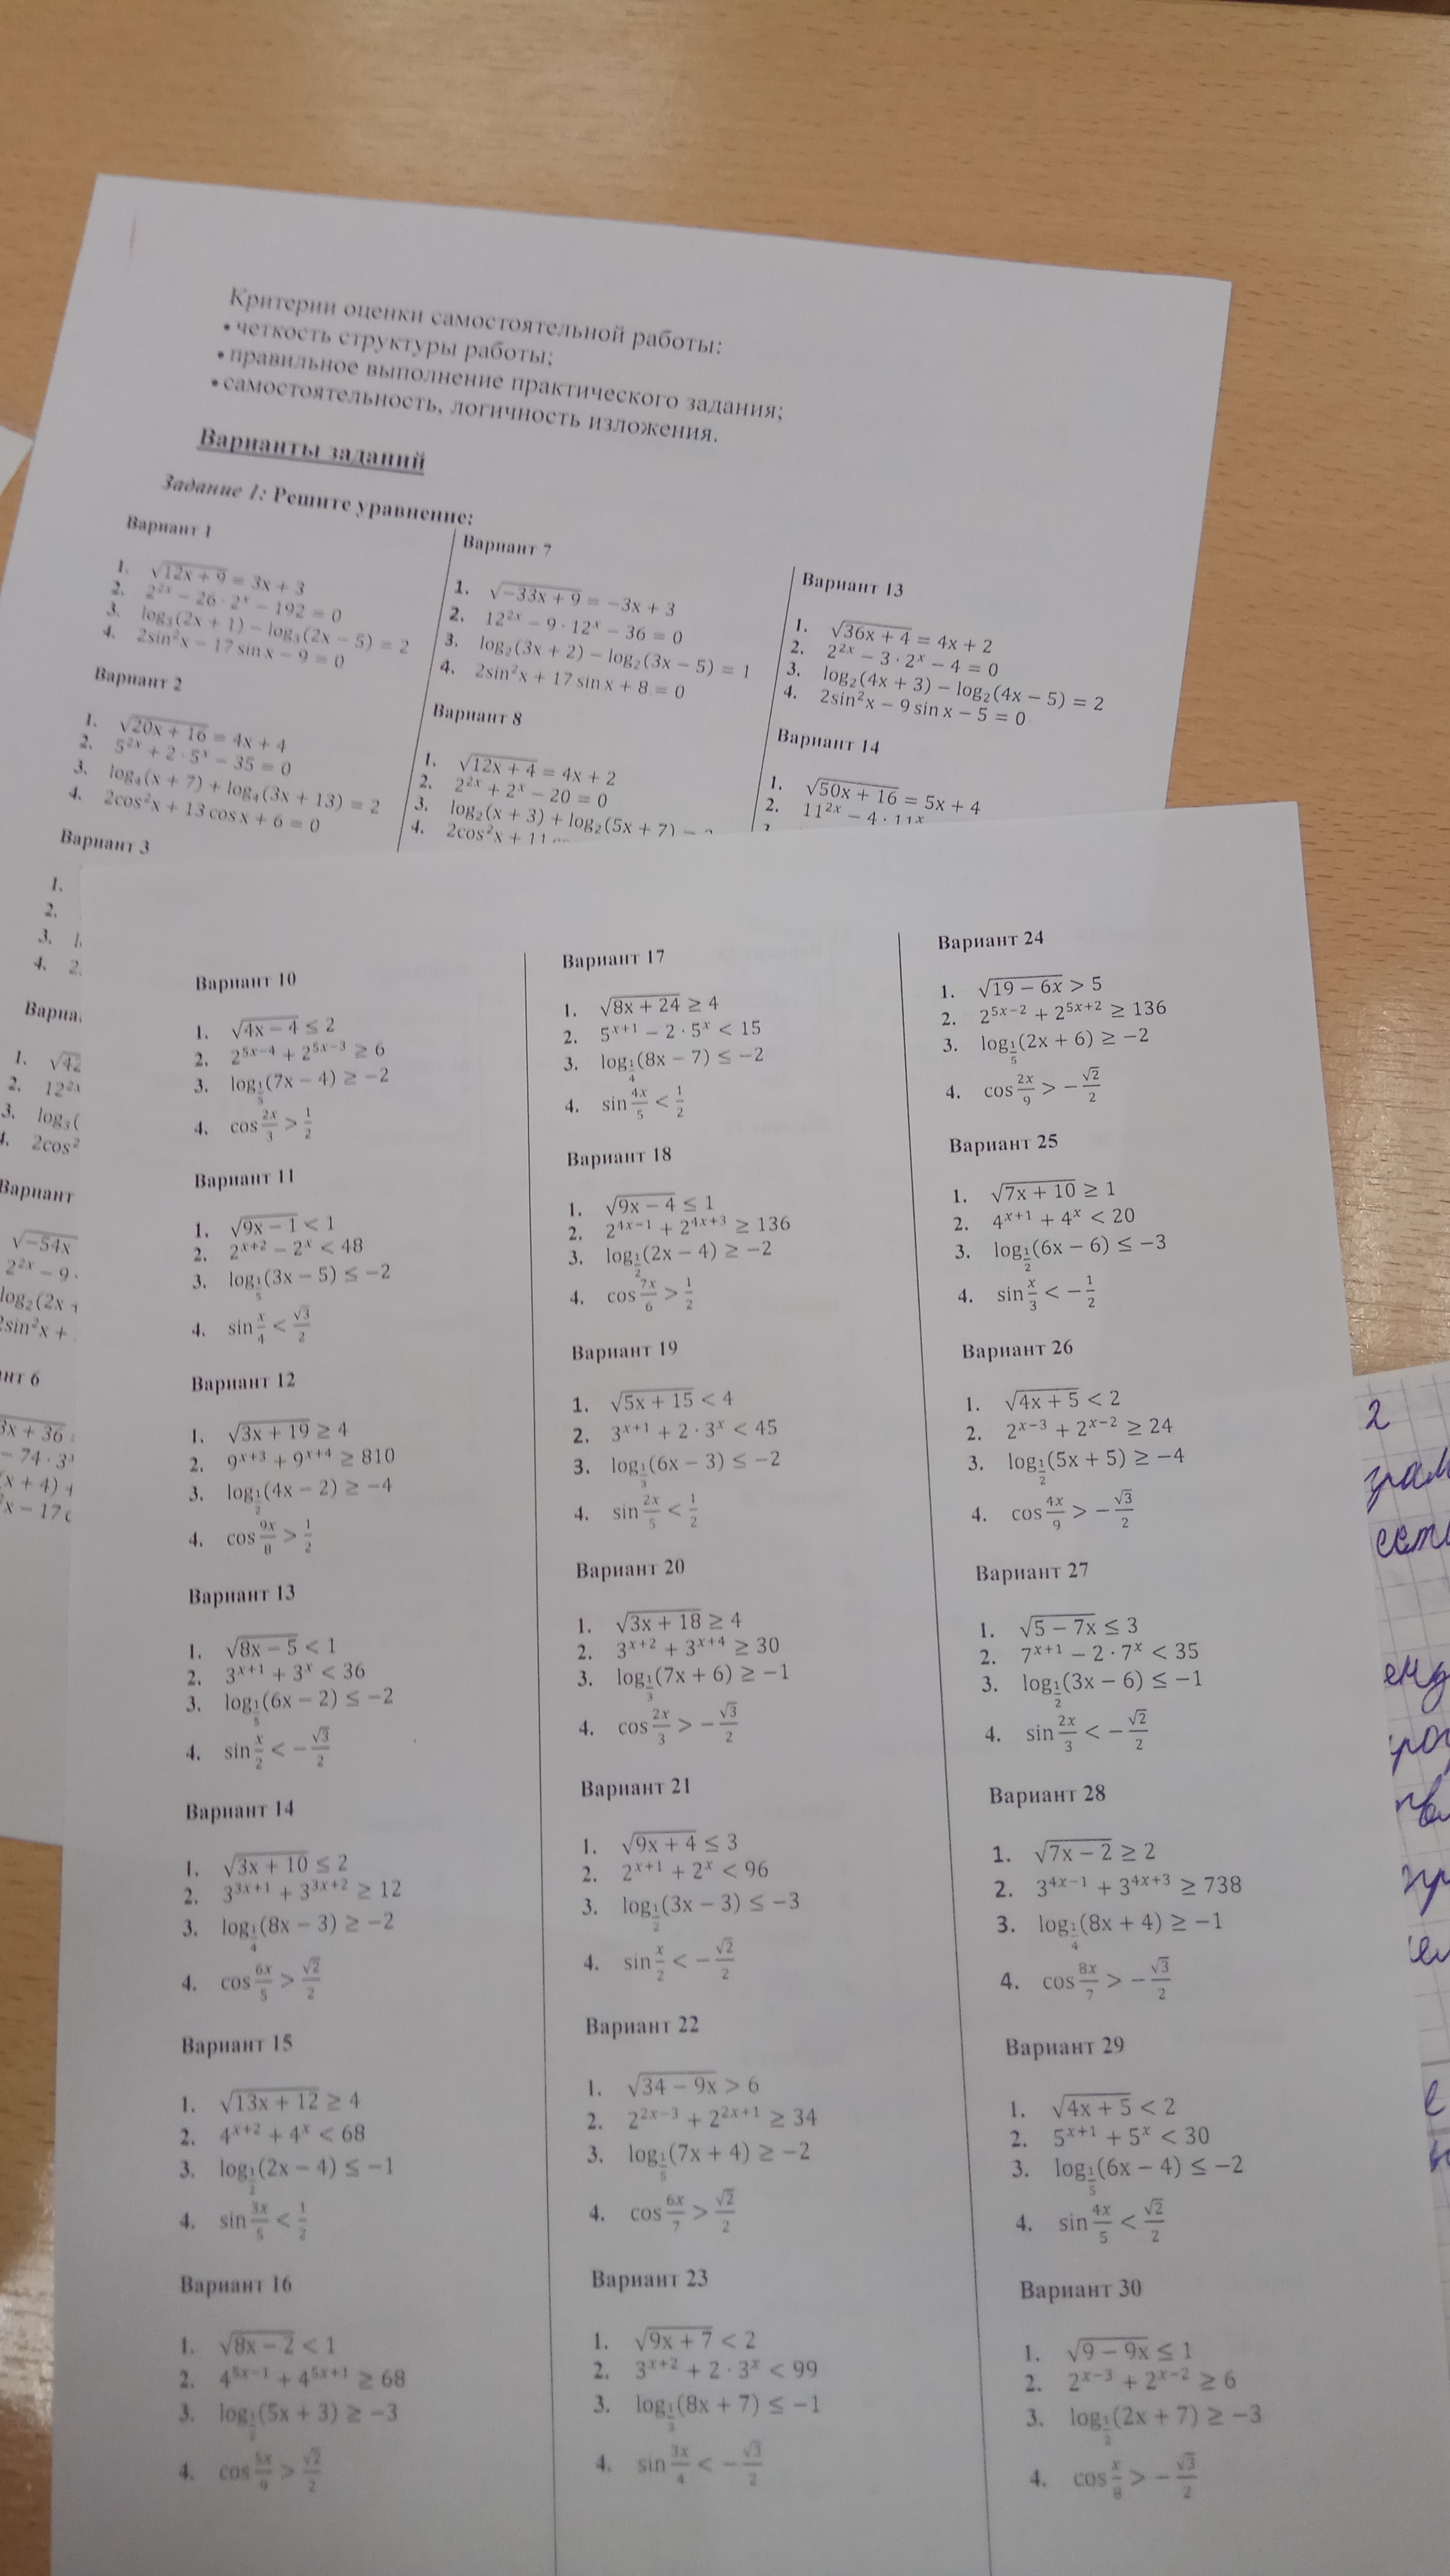 Критерии оценки самостоятельной работы:
• четкость структуры работы;
• правильное выполнение практического задания;
• самостоятельность, логичность изложения.
Варианты заданий
Задание 1: Решите уравнение:
Вариант 1
1. √(12x + 9) = 3x + 3
2. 2^(2x) − 26 · 2^x − 192 = 0
3. log₃(2x + 1) − log₃(2x − 5) = 2
4. 2sin²x − 17 sin x − 9 = 0
Вариант 2
1. √(20x + 16) = 4x + 4
2. 5^(2x) + 2 · 5^x − 35 = 0
3. log₄(x + 7) + log₄(3x + 13) = 2
4. 2cos²x + 13 cos x + 6 = 0
Вариант 3
1.
2.
3.
4. 2
1. √42
2. 12^(2x)
3. log₃(
4. 2cos²
Вариант
√−54x
2^(2x) − 9 ·
log₂(2x +
2sin²x +
6
3x + 36
− 74 · 3
(x + 4) +
x − 17 c
Вариант 7
1. √(−33x + 9) = −3x + 3
2. 12^(2x) − 9 · 12^x − 36 = 0
3. log₂(3x + 2) − log₂(3x − 5) = 1
4. 2sin²x + 17 sin x + 8 = 0
Вариант 8
1. √(12x + 4) = 4x + 2
2. 2^(2x) + 2^x − 20 = 0
3. log₂(x + 3) + log₂(5x + 7) =
4. 2cos²x + 11
Вариант 13
1. √(36x + 4) = 4x + 2
2. 2^(2x) − 3 · 2^x − 4 = 0
3. log₂(4x + 3) − log₂(4x − 5) = 2
4. 2sin²x − 9 sin x − 5 = 0
Вариант 14
1. √(50x + 16) = 5x + 4
2. 11^(2x) − 4 · 11^x
Вариант 10
1. √(4x − 4) ≤ 2
2. 2^(5x−4) + 2^(5x−3) ≥ 6
3. log_(1/5)(7x − 4) ≥ −2
4. cos 2x/3 > 1/2
Вариант 11
1. √(9x − 1) < 1
2. 2^(x+2) − 2^x < 48
3. log_(1/5)(3x − 5) ≤ −2
4. sin x/4 < √3/2
Вариант 12
1. √(3x + 19) ≥ 4
2. 9^(x+3) + 9^(x+4) ≥ 810
3. log_(1/2)(4x − 2) ≥ −4
4. cos 9x/8 > 1/2
Вариант 13
1. √(8x − 5) < 1
2. 3^(x+1) + 3^x < 36
3. log_(1/5)(6x − 2) ≤ −2
4. sin x/2 < −√3/2
Вариант 14
1. √(3x + 10) ≤ 2
2. 3^(3x+1) + 3^(3x+2) ≥ 12
3. log_(1/4)(8x − 3) ≥ −2
4. cos 6x/5 > √2/2
Вариант 15
1. √(13x + 12) ≥ 4
2. 4^(x+2) + 4^x < 68
3. log_(1/2)(2x − 4) ≤ −1
4. sin 3x/5 < 1/2
Вариант 16
1. √(8x − 2) < 1
2. 4^(5x−1) + 4^(5x+1) ≥ 68
3. log(5x + 3) ≥ −3
4. cos 5x/9 > √2/2
Вариант 17
1. √(8x + 24) ≥ 4
2. 5^(x+1) − 2 · 5^x < 15
3. log_(1/4)(8x − 7) ≤ −2
4. sin 4x/5 < 1/2
Вариант 18
1. √(9x − 4) ≤ 1
2. 2^(4x−1) + 2^(4x+3) ≥ 136
3. log_(1/2)(2x − 4) ≥ −2
4. cos 7x/6 > 1/2
Вариант 19
1. √(5x + 15) < 4
2. 3^(x+1) + 2 · 3^x < 45
3. log_(1/3)(6x − 3) ≤ −2
4. sin 2x/5 < 1/2
Вариант 20
1. √(3x + 18) ≥ 4
2. 3^(x+2) + 3^(x+4) ≥ 30
3. log_(1/3)(7x + 6) ≥ −1
4. cos 2x/3 > −√3/2
Вариант 21
1. √(9x + 4) ≤ 3
2. 2^(x+1) + 2^x < 96
3. log_(1/2)(3x − 3) ≤ −3
4. sin x/2 < −√2/2
Вариант 22
1. √(34 − 9x) > 6
2. 2^(2x−3) + 2^(2x+1) ≥ 34
3. log_(1/5)(7x + 4) ≥ −2
4. cos 6x/7 > √2/2
Вариант 23
1. √(9x + 7) < 2
2. 3^(x+2) + 2 · 3^x < 99
3. log_(1/3)(8x + 7) ≤ −1
4. sin 3x/4 < −√3/2
Вариант 24
1. √(19 − 6x) > 5
2. 2^(5x−2) + 2^(5x+2) ≥ 136
3. log_(1/5)(2x + 6) ≥ −2
4. cos 2x/9 > −√2/2
Вариант 25
1. √(7x + 10) ≥ 1
2. 4^(x+1) + 4^x < 20
3. log_(1/2)(6x − 6) ≤ −3
4. sin x/3 < −1/2
Вариант 26
1. √(4x + 5) < 2
2. 2^(x−3) + 2^(x−2) ≥ 24
3. log_(1/2)(5x + 5) ≥ −4
4. cos 4x/9 > −√3/2
Вариант 27
1. √(5 − 7x) ≤ 3
2. 7^(x+1) − 2 · 7^x < 35
3. log_(1/2)(3x − 6) ≤ −1
4. sin 2x/3 < −√2/2
Вариант 28
1. √(7x − 2) ≥ 2
2. 3^(4x−1) + 3^(4x+3) ≥ 738
3. log_(1/4)(8x + 4) ≥ −1
4. cos 8x/7 > −√3/2
Вариант 29
1. √(4x + 5) < 2
2. 5^(x+1) + 5^x < 30
3. log_(1/5)(6x − 4) ≤ −2
4. sin 4x/5 < √2/2
Вариант 30
1. √(9 − 9x) ≤ 1
2. 2^(x−3) + 2^(x−2) ≥ 6
3. log_(1/2)(2x + 7) ≥ −3
4. cos x/8 > −√3/2
2